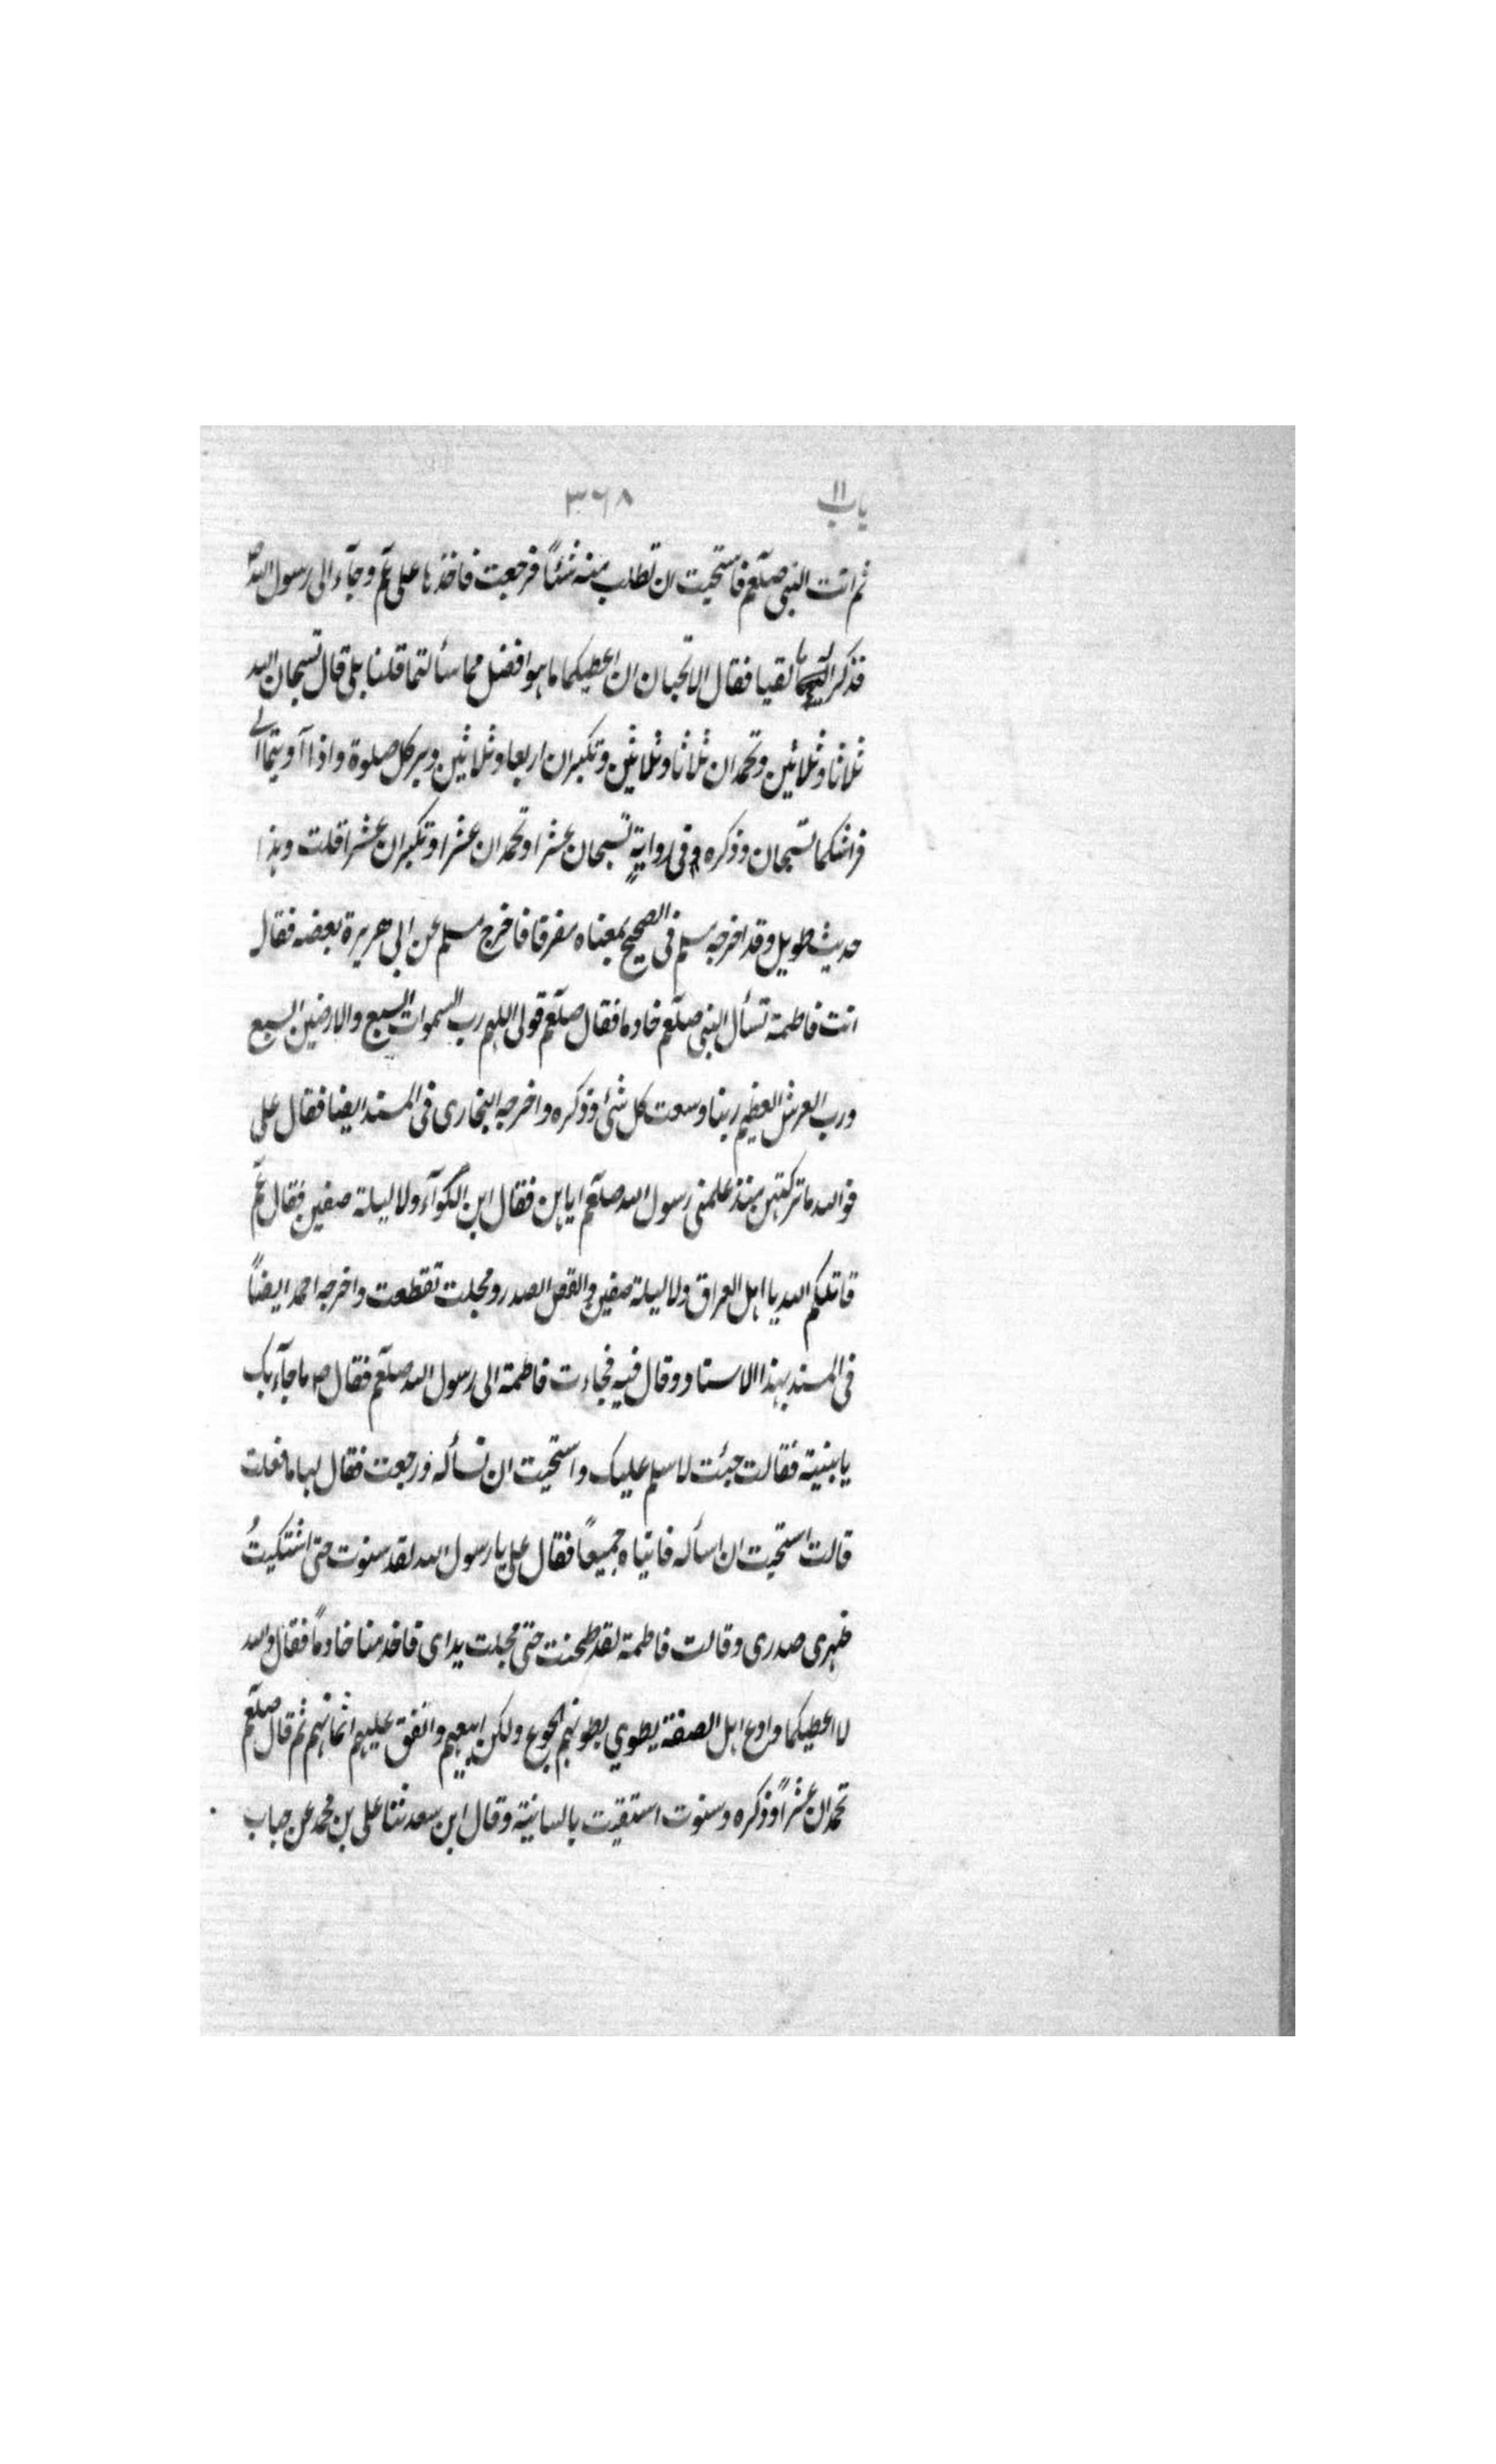 باب ١١ ٣٦٨
ثم اتت النبى صلعم فاستحيت ان تطلب منه شئاً فرجعت فاخذها على عم وجآء الى رسول الله ص
فذكرا لقيا فقال الا تحبان ان اعطيكما ما هو افضل مما سألتما قلنا بلى قال تسبحان الله
ثلاثا وثلاثين وتحمدان ثلاثا وثلاثين وتكبران اربعا وثلاثين دبر كل صلوة واذا آويتما الى
فراشكما تسبحان وذكره وفى رواية تسبحان عشرا وتحمدان عشرا وتكبران عشرا قلت وهذا
حديث طويل وقد اخرجه مسلم فى الصحيح بمعناه مفرقا فاخرج مسلم عن ابى هريرة بعضه فقال
اتت فاطمة تسأل النبى صلعم خادما فقال صلعم قولى اللهم رب السموات السبع والارضين السبع
ورب العرش العظيم ربنا وسعت كل شئ وذكره واخرجه البخارى فى المسند ايضا فقال على
فوالله ما تركتهن منذ علمنى رسول الله صلعم اياهن فقال ابن الكوآء ولا ليلة صفين فقال عم
قاتلكم الله يا اهل العراق ولا ليلة صفين والقص الصدر ومجلت تقطعت واخرجه احمد ايضاً
فى المسند بهذا الاسناد وقال فيه فجاءت فاطمة الى رسول الله صلعم فقال ص ما جآء بك
يا بنية فقالت جئت لاسلم عليك واستحيت ان تسأله ورجعت فقال لها ما فعلت
قالت استحيت ان اسأله فاتياه جميعاً فقال على يا رسول الله لقد سنوت حتى اشتكيتُ
ظهرى صدرى وقالت فاطمة لقد طحنت حتى مجلت يداى فاخدمنا خادماً فقال والله
لا اعطيكما وادع اهل الصفة يطوي بطونهم الجوع ولكن ابيعهم وانفق عليهم اثمانهم ثم قال صلعم
تحمدان عشراً وذكره وسنوت استقيت بالسانية وقال ابن سعد ثنا على بن محمد عن حباب